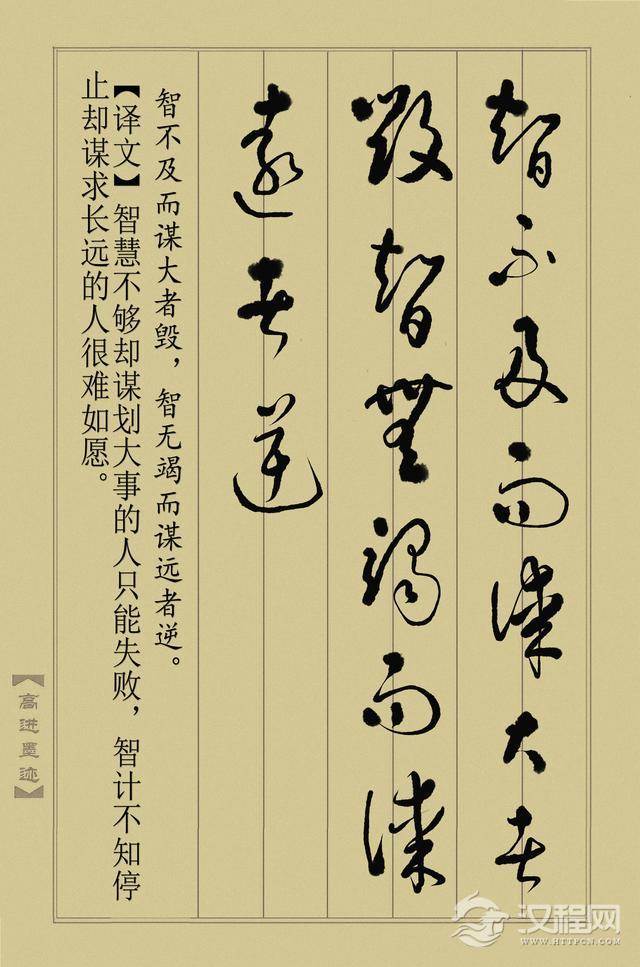 智不及而谋大者
毁智無竭而谋
遠者逆
智不及而谋大者毁，智无竭而谋远者逆。
【译文】智慧不够却谋划大事的人只能失败，智计不知停
止却谋求长远的人很难如愿。
【高进墨迹】
汉程网
WWW.HTTPCN.COM